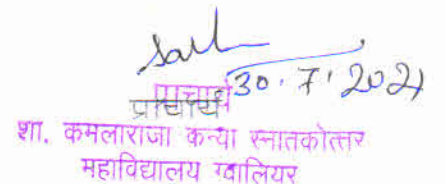 30.7.2021
प्राचार्य
शा. कमलाराजा कन्या स्नातकोत्तर
महाविद्यालय ग्वालियर